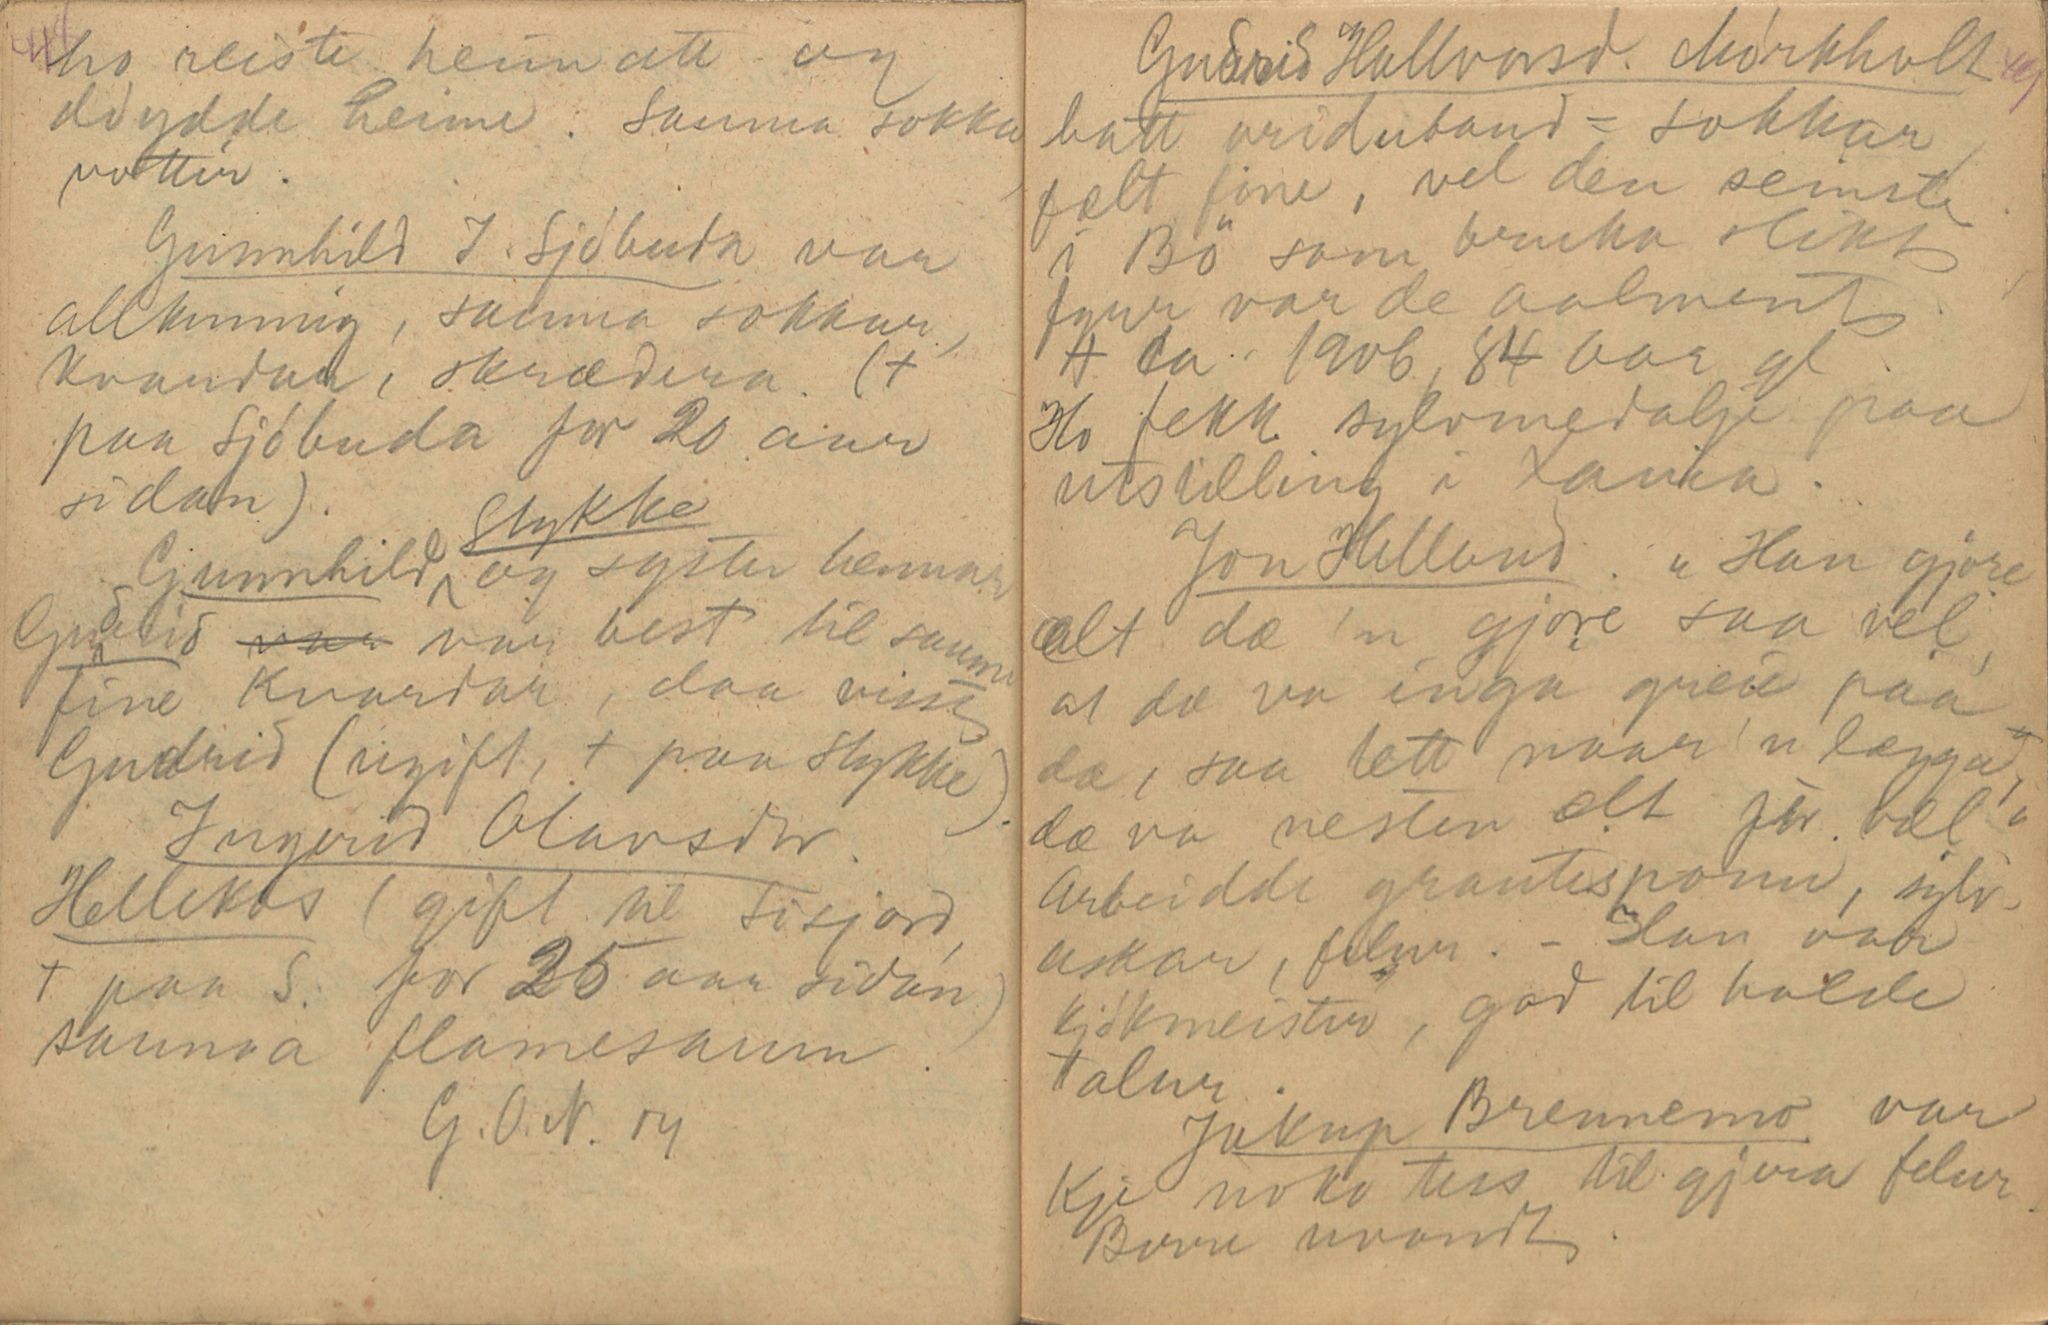 ho reiste heim att og
döydde heime. Sauma sokka,
vottir.
Gunnhild J. Sjóbuda var
allkunnig, sauma sokkar,
Kvardar, skrædera. (†
paa Sjóbuda for 20 aar
sidan).
Gunnhild Stykke og syster hennar
Gudrid var var best til sauma
fine Kvardar, daa visst
Gudrid (ugift, † paa Stykke).
Ingerid Olavsdtr.
Hellekås (gift til Sisjord,
† paa S. for 25 aar sidan)
saumaa flamesaum.
G.O.N. og
49
Gudrid Hallvorsd. Mörkholt
batt vriduband = sokkar,
fælt fine, vel den seinste
i Bö som bruka slikt
fyrr var de aalment
† ca. 1906, 84 aar gl.
Ho fekk sylvmedalje paa
utstilling i
Jon Helland. "Han gjore
alt dæ 'n gjore saa vel,
at dæ va inga greie paa
dæ, saa lett naar 'n lægga't,
dæ va nesten ælt for væl"
Arbeidde grautesponn, sylv-
askar, felur. - Han var
kjökmeister, god til halde
talur.
Jakup Brennemo var
Kje noko tess til gjera felur.
Bovre uvandt.